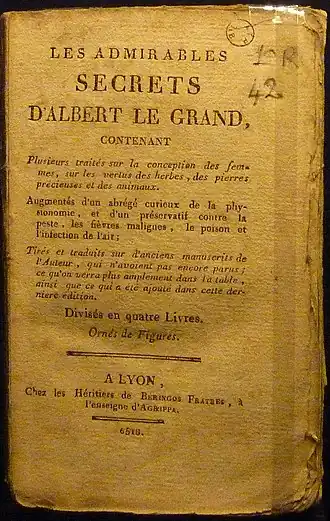 LR
42
LES ADMIRABLES
SECRETS
D'ALBERT LE GRAND,
CONTENANT
Plusieurs traités sur la conception des fem-
mes, sur les vertus des herbes, des pierres
précieuses et des animaux.
Augmentés d'un abrégé curieux de la phy-
sionomie, et d'un préservatif contre la
peste, les fièvres malignes, le poison et
l'infection de l'air;
Tirés et traduits sur d'anciens manuscrits de
l'Auteur, qui n'avaient pas encore parus;
ce qu'on verra plus amplement dans la table,
ainsi que ce qui a été ajouté dans cette der-
nière édition.
Divisés en quatre Livres.
Ornés de Figures.
A LYON,
Chez les Héritiers de BERINGOS FRATRES, à
l'enseigne d'AGRIPPA.
6510.